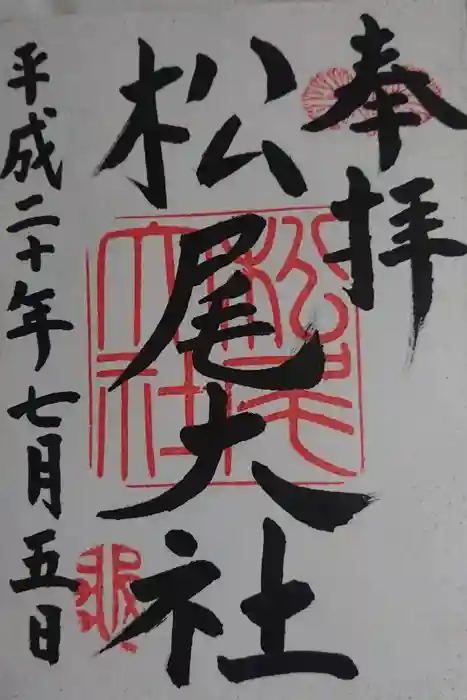 奉拝
松尾大社
平成二十年七月五日
松尾大社